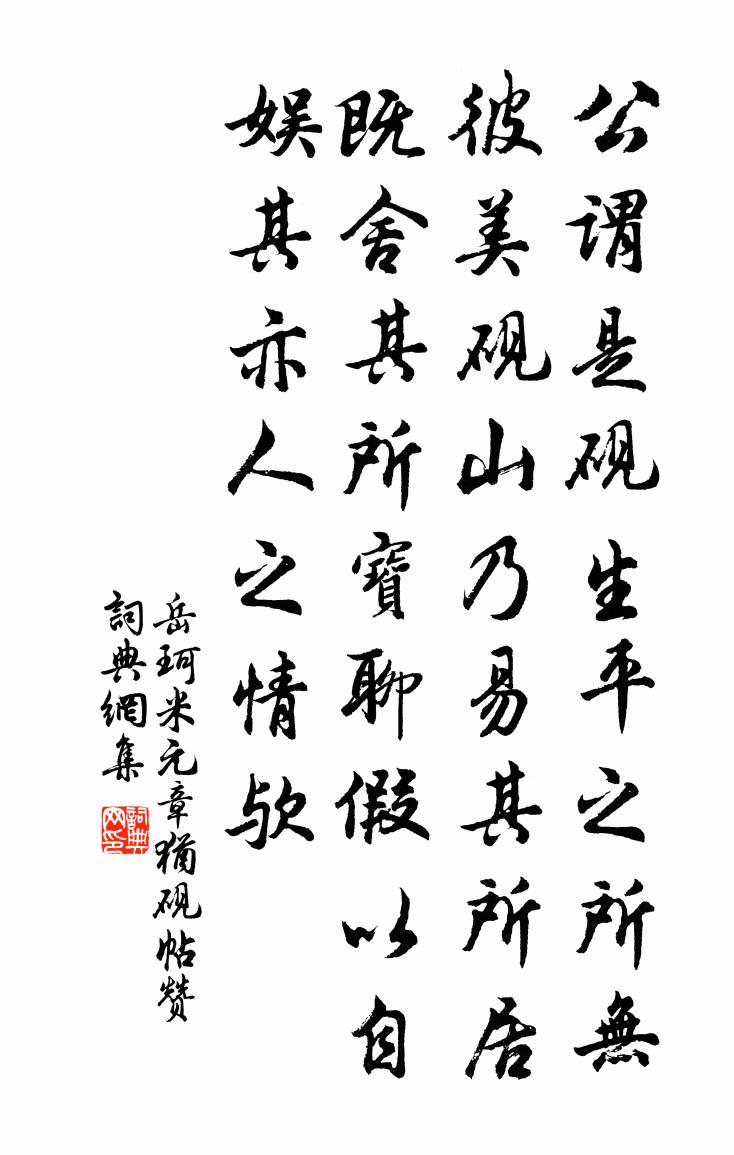 公謂是硯生平之所無
彼美硯山乃易其所居
既舍其所寶聊假以自
娱其亦人之情欤
岳珂米元章猶硯帖贊
詞典網集
詞典
网印